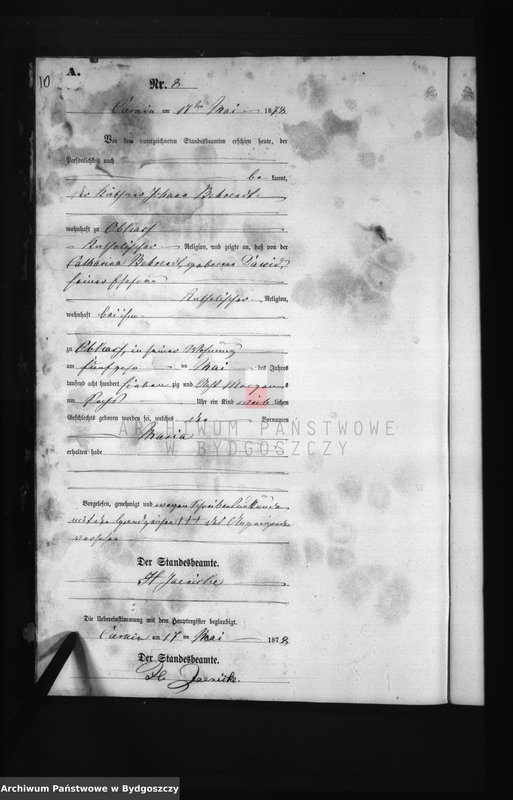 10
A.
Nr. 8
am 17ten Mai 1878
Vor dem unterzeichneten Standesbeamten erschien heute, der
Persönlichkeit nach
be kannt,
der Käthner Johann
wohnhaft zu
Katholischer Religion, und zeigte an, daß von der
Catharina geborene Dawid,
seiner Ehefrau
Katholischer Religion,
wohnhaft bei ihm
zu in seiner Wohnung
am fünfzehn ten Mai des Jahres
tausend acht hundert sieben zig und Acht Morgens
um Uhr ein Kind weib lichen
Geschlechts geboren worden sei, welches Vornamen
Maria
erhalten habe
ARCHIWUM PAŃSTWOWE
W BYDGOSZCZY
Vorgelesen, genehmigt und wegen Schreibensunkunde
mit den Handzeichen ††† des Anzeigenden
versehen
Der Standesbeamte.
H. Jaenicke
Die Uebereinstimmung mit dem Hauptregister beglaubigt.
am 17 ten Mai 1878
Der Standesbeamte.
Jaenicke.
Archiwum Państwowe w Bydgoszczy